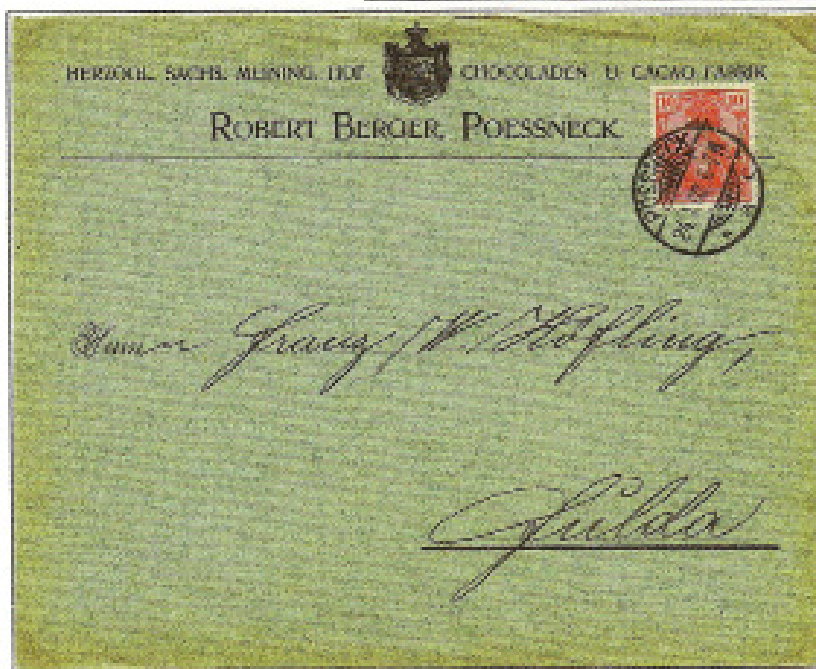 HERZOGL. SACHS. MEINING. HOF CHOCOLADEN U. CACAO FABRIK
ROBERT BERGER, POESSNECK
10 10
Herrn Franz W. Höfling,
Fulda